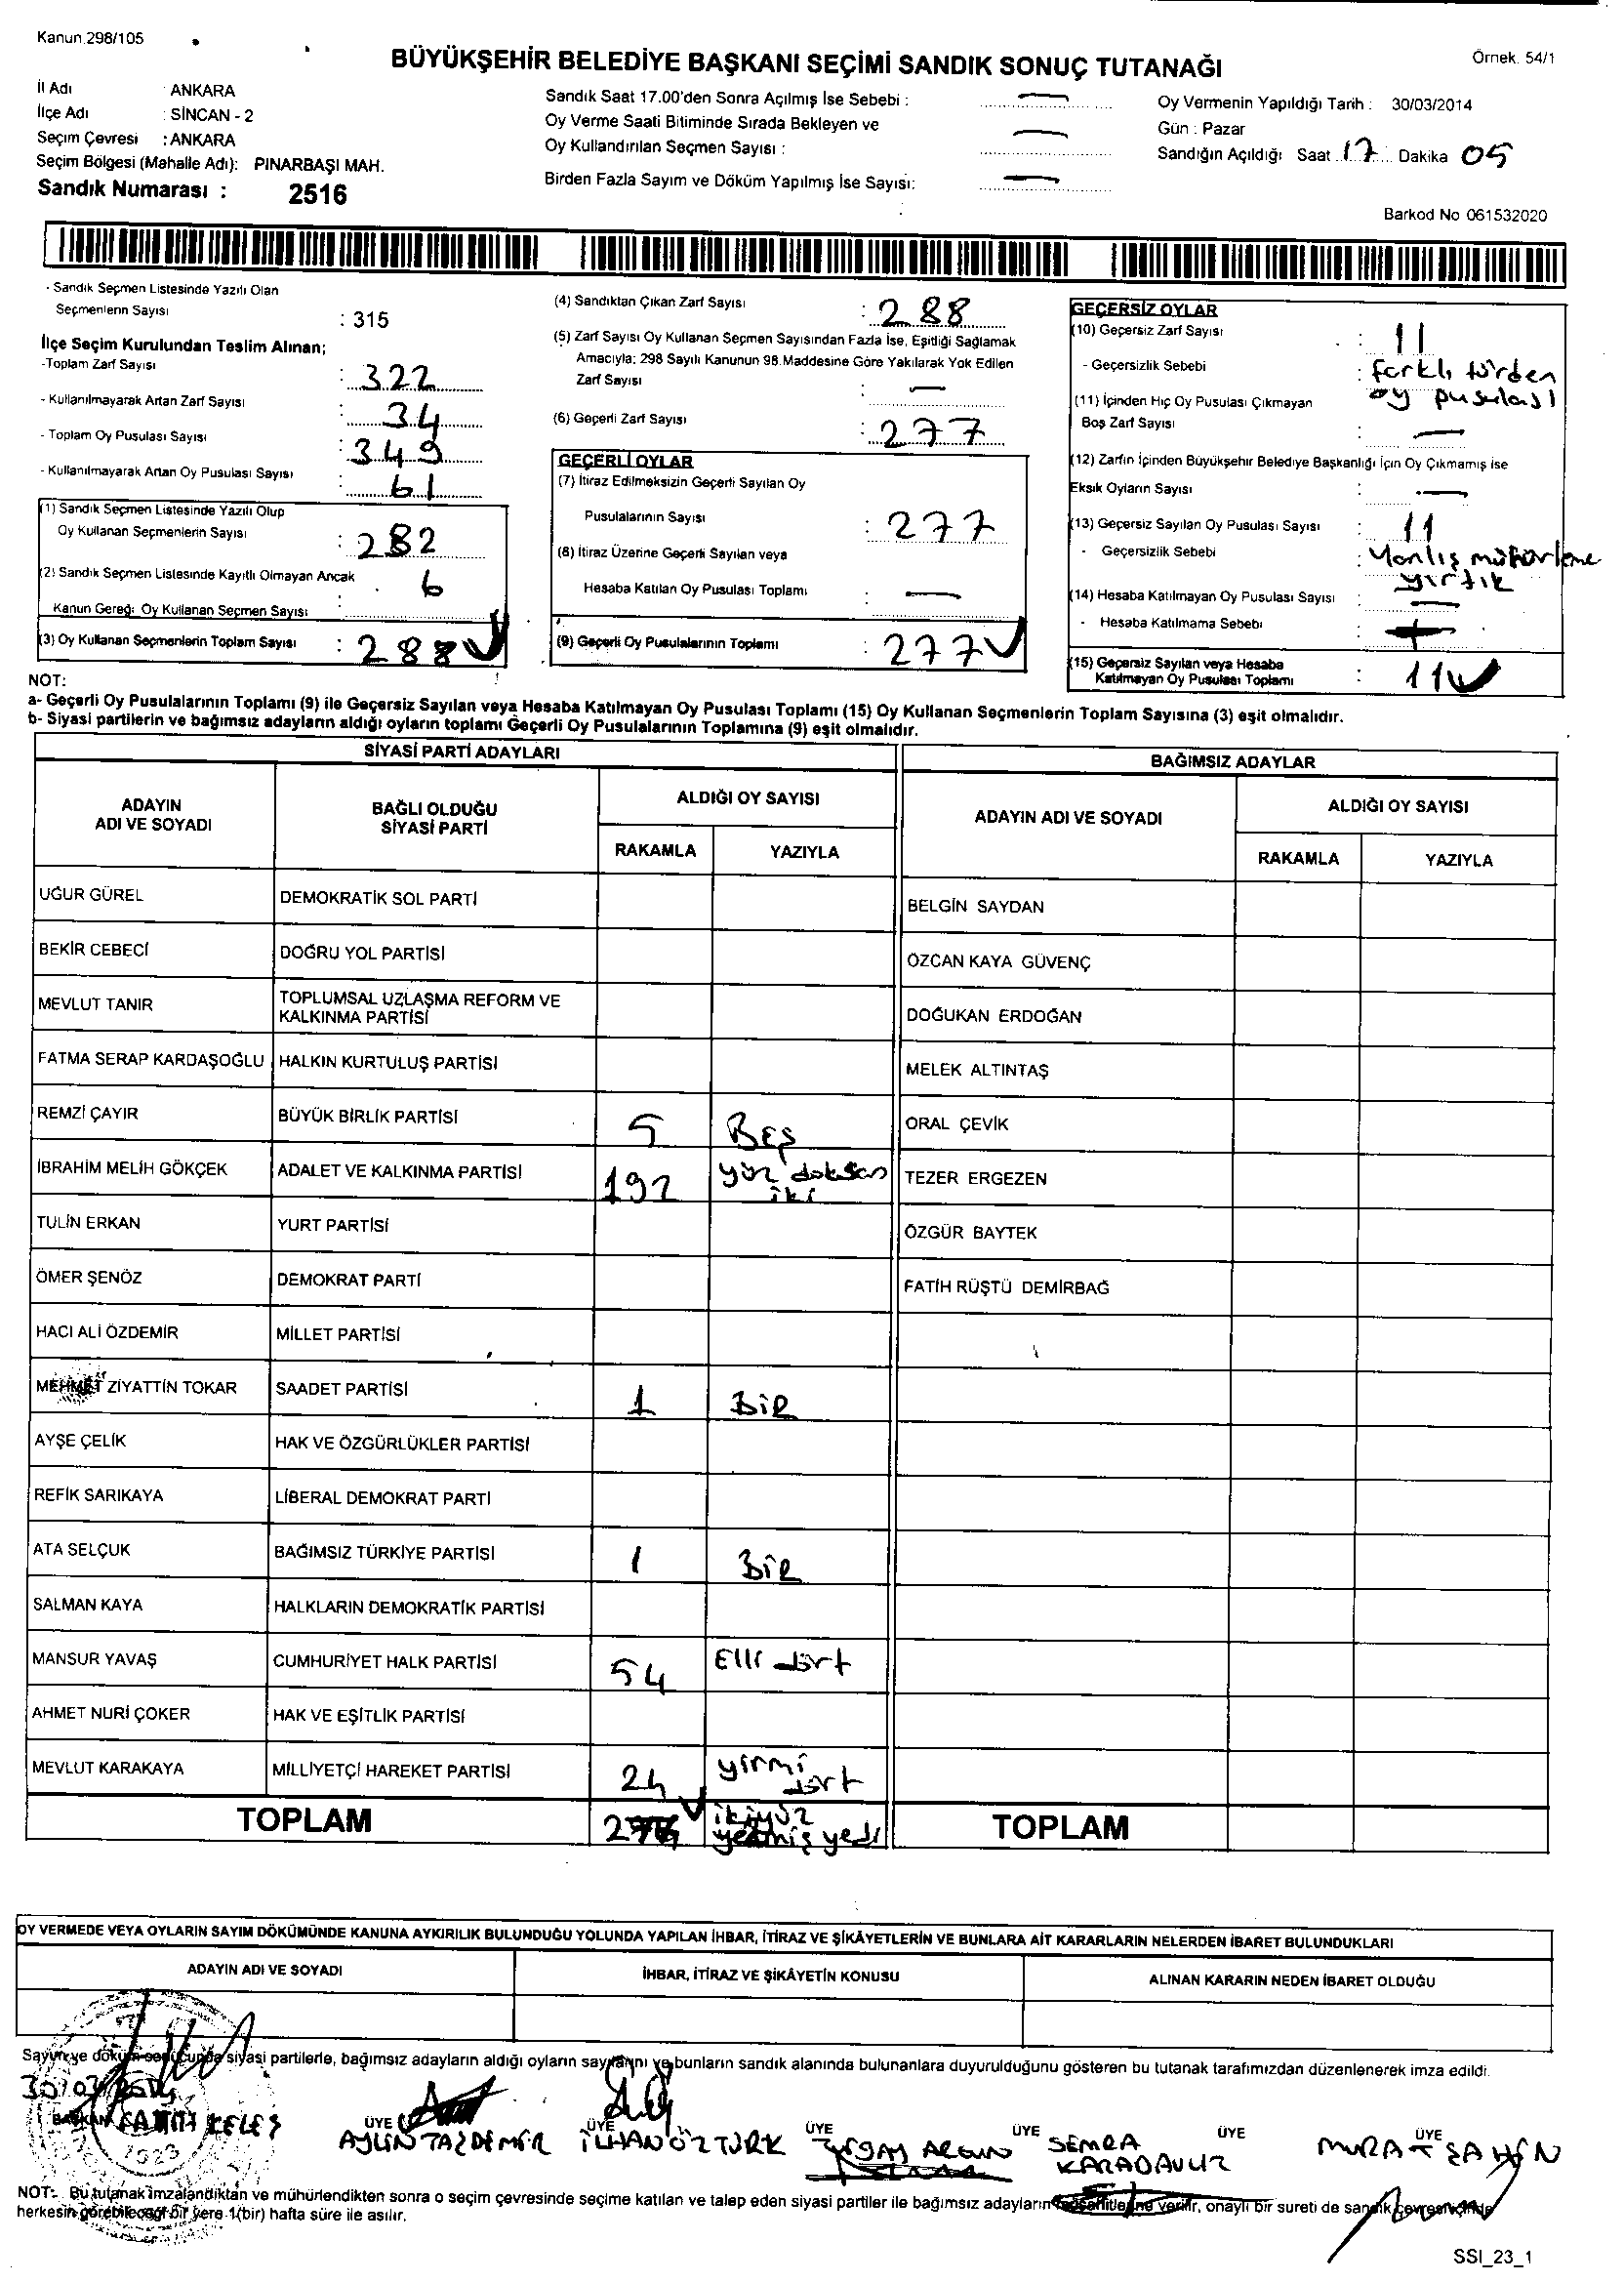 Kanun 298/105
BÜYÜKŞEHİR BELEDİYE BAŞKANI SEÇİMİ SANDIK SONUÇ TUTANAĞI
Örnek. 54/1
İl Adı : ANKARA
İlçe Adı : SİNCAN - 2
Seçim Çevresi : ANKARA
Seçim Bölgesi (Mahalle Adı): PINARBAŞI MAH.
Sandık Numarası : 2516
Sandık Saat 17.00'den Sonra Açılmış İse Sebebi : —
Oy Verme Saati Bitiminde Sırada Bekleyen ve
Oy Kullandırılan Seçmen Sayısı : —
Birden Fazla Sayım ve Döküm Yapılmış İse Sayısı: —
Oy Vermenin Yapıldığı Tarih : 30/03/2014
Gün : Pazar
Sandığın Açıldığı Saat 17 Dakika 05
Barkod No 061532020
- Sandık Seçmen Listesinde Yazılı Olan
Seçmenlerin Sayısı : 315
İlçe Seçim Kurulundan Teslim Alınan;
-Toplam Zarf Sayısı : 322
- Kullanılmayarak Artan Zarf Sayısı : 34
- Toplam Oy Pusulası Sayısı : 349
- Kullanılmayarak Artan Oy Pusulası Sayısı : 61
(1) Sandık Seçmen Listesinde Yazılı Olup
Oy Kullanan Seçmenlerin Sayısı : 282
(2) Sandık Seçmen Listesinde Kayıtlı Olmayan Ancak
Kanun Gereği Oy Kullanan Seçmen Sayısı : 6
(3) Oy Kullanan Seçmenlerin Toplam Sayısı : 288
(4) Sandıktan Çıkan Zarf Sayısı : 288
(5) Zarf Sayısı Oy Kullanan Seçmen Sayısından Fazla İse, Eşitliği Sağlamak
Amacıyla; 298 Sayılı Kanunun 98.Maddesine Göre Yakılarak Yok Edilen
Zarf Sayısı : —
(6) Geçerli Zarf Sayısı : 277
GEÇERLİ OYLAR
(7) İtiraz Edilmeksizin Geçerli Sayılan Oy
Pusulalarının Sayısı : 277
(8) İtiraz Üzerine Geçerli Sayılan veya
Hesaba Katılan Oy Pusulası Toplamı : —
(9) Geçerli Oy Pusulalarının Toplamı : 277
GEÇERSİZ OYLAR
(10) Geçersiz Zarf Sayısı : 11
- Geçersizlik Sebebi : farklı türden
oy pusulası
(11) İçinden Hiç Oy Pusulası Çıkmayan
Boş Zarf Sayısı : —
(12) Zarfın İçinden Büyükşehir Belediye Başkanlığı İçin Oy Çıkmamış ise
Eksik Oyların Sayısı : —
(13) Geçersiz Sayılan Oy Pusulası Sayısı : 11
- Geçersizlik Sebebi : Yanlış mühürleme
yırtık
(14) Hesaba Katılmayan Oy Pusulası Sayısı : —
- Hesaba Katılmama Sebebi :
(15) Geçersiz Sayılan veya Hesaba
Katılmayan Oy Pusulası Toplamı : 11
NOT:
a- Geçerli Oy Pusulalarının Toplamı (9) ile Geçersiz Sayılan veya Hesaba Katılmayan Oy Pusulası Toplamı (15) Oy Kullanan Seçmenlerin Toplam Sayısına (3) eşit olmalıdır.
b- Siyasi partilerin ve bağımsız adayların aldığı oyların toplamı Geçerli Oy Pusulalarının Toplamına (9) eşit olmalıdır.
SİYASİ PARTİ ADAYLARI
BAĞIMSIZ ADAYLAR
ADAYIN ADI VE SOYADI
BAĞLI OLDUĞU SİYASİ PARTİ
ALDIĞI OY SAYISI
RAKAMLA YAZIYLA
ADAYIN ADI VE SOYADI
ALDIĞI OY SAYISI
RAKAMLA YAZIYLA
UĞUR GÜREL DEMOKRATİK SOL PARTİ
BELGİN SAYDAN
BEKİR CEBECİ DOĞRU YOL PARTİSİ
ÖZCAN KAYA GÜVENÇ
MEVLUT TANIR TOPLUMSAL UZLAŞMA REFORM VE KALKINMA PARTİSİ
DOĞUKAN ERDOĞAN
FATMA SERAP KARDAŞOĞLU HALKIN KURTULUŞ PARTİSİ
MELEK ALTINTAŞ
REMZİ ÇAYIR BÜYÜK BİRLİK PARTİSİ 5 Beş
ORAL ÇEVİK
İBRAHİM MELİH GÖKÇEK ADALET VE KALKINMA PARTİSİ 192 yüz doksan iki
TEZER ERGEZEN
TULİN ERKAN YURT PARTİSİ
ÖZGÜR BAYTEK
ÖMER ŞENÖZ DEMOKRAT PARTİ
FATİH RÜŞTÜ DEMİRBAĞ
HACI ALİ ÖZDEMİR MİLLET PARTİSİ
MEHMET ZİYATTİN TOKAR SAADET PARTİSİ 1 BİR
AYŞE ÇELİK HAK VE ÖZGÜRLÜKLER PARTİSİ
REFİK SARIKAYA LİBERAL DEMOKRAT PARTİ
ATA SELÇUK BAĞIMSIZ TÜRKİYE PARTİSİ 1 BİR
SALMAN KAYA HALKLARIN DEMOKRATİK PARTİSİ
MANSUR YAVAŞ CUMHURİYET HALK PARTİSİ 54 Elli dört
AHMET NURİ ÇOKER HAK VE EŞİTLİK PARTİSİ
MEVLUT KARAKAYA MİLLİYETÇİ HAREKET PARTİSİ 24 yirmi dört
TOPLAM ikiyüz yetmiş yedi
TOPLAM
OY VERMEDE VEYA OYLARIN SAYIM DÖKÜMÜNDE KANUNA AYKIRILIK BULUNDUĞU YOLUNDA YAPILAN İHBAR, İTİRAZ VE ŞİKÂYETLERİN VE BUNLARA AİT KARARLARIN NELERDEN İBARET BULUNDUKLARI
ADAYIN ADI VE SOYADI
İHBAR, İTİRAZ VE ŞİKÂYETİN KONUSU
ALINAN KARARIN NEDEN İBARET OLDUĞU
Sayım ve döküm sonucunda siyasi partilerle, bağımsız adayların aldığı oyların sayılarını ve bunların sandık alanında bulunanlara duyurulduğunu gösteren bu tutanak tarafımızdan düzenlenerek imza edildi.
30/03/2014
BAŞKAN KELEŞ
ÜYE AYLİN TAŞDEMİR
ÜYE İLHAN ÖZTÜRK
ÜYE
ÜYE SEMRA KARADAVUZ
ÜYE
ÜYE MURAT ŞAHİN
NOT:. Bu tutanak imzalandıktan ve mühürlendikten sonra o seçim çevresinde seçime katılan ve talep eden siyasi partiler ile bağımsız adayların müşahitlerine verilir, onaylı bir sureti de sandık çevresi içinde
herkesin görebileceği bir yere 1(bir) hafta süre ile asılır.
SSI_23_1